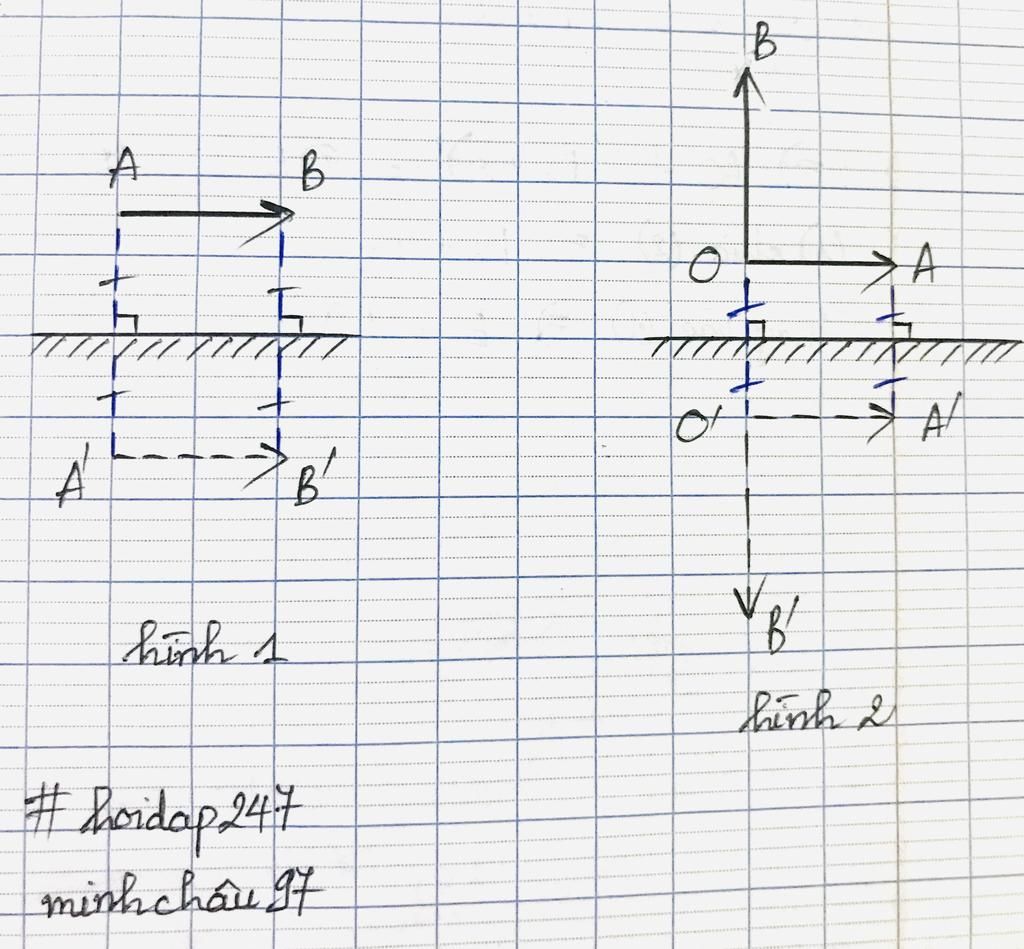 A B
A' B'
hình 1
B
O A
O' A'
B'
hình 2
# hoidap247
minhchâu97